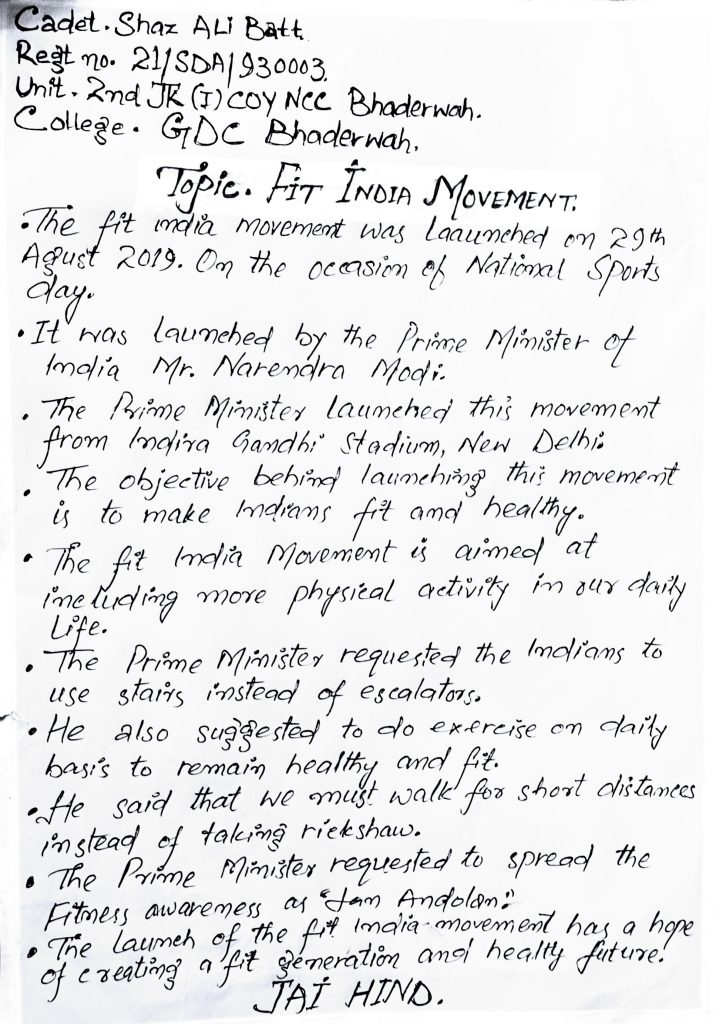 Cadet. Shaz ALi Batt
Regt no. 21/SDA/930003.
Unit. 2nd JK (I) COY NCC Bhaderwah.
College. GDC Bhaderwah.
Topic. FIT INDIA MOVEMENT.
• The fit india movement was Laaunched on 29th
Agust 2019. On the occasion of National Sports
day.
• It was launched by the Prime Minister of
India Mr. Narendra Modi.
• The Prime Minister launched this movement
from Indira Gandhi Stadium, New Delhi.
• The objective behind launching this movement
is to make Indians fit and healthy.
• The fit India Movement is aimed at
including more physical activity in our daily
Life.
• The Prime Minister requested the Indians to
use stairs instead of escalators.
• He also suggested to do exercise on daily
basis to remain healthy and fit.
• He said that we must walk for short distances
instead of taking rickshaw.
• The Prime Minister requested to spread the
Fitness awareness as "Jan Andolan."
• The launch of the fit India movement has a hope
of creating a fit generation and healthy future.
JAI HIND.